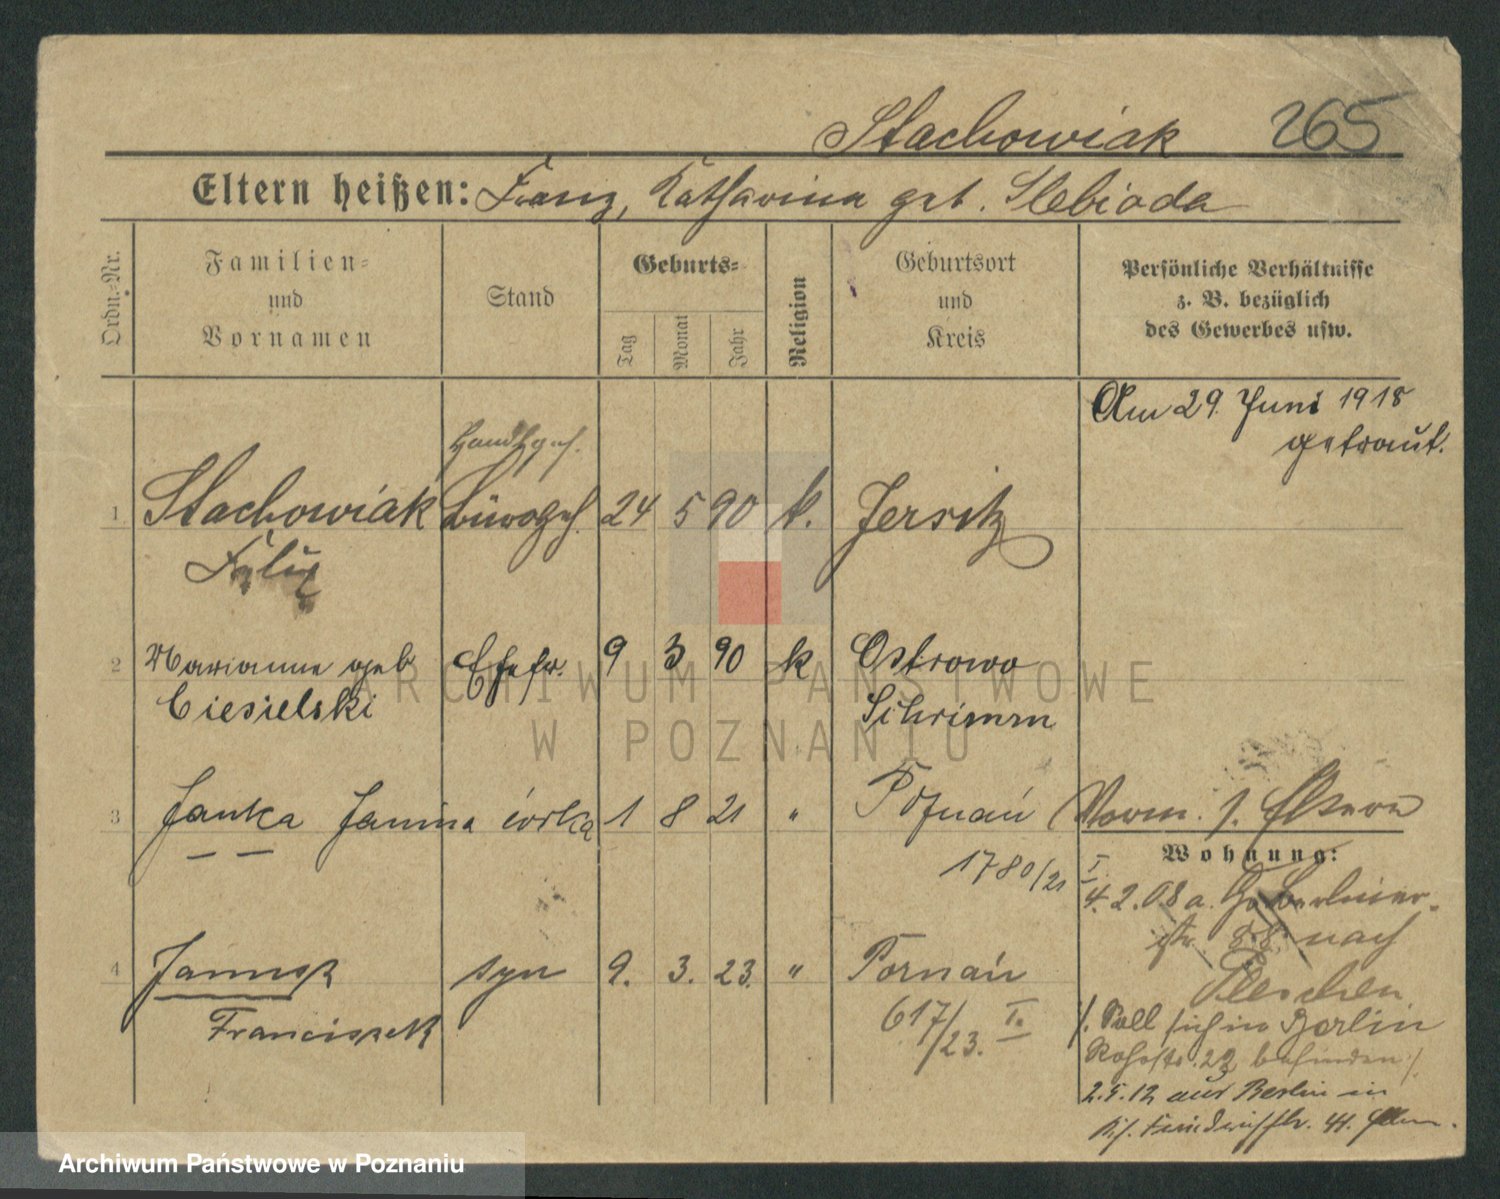 Stachowiak 265
Eltern heißen: Franz, Katharina geb. Slebioda
Ordn.-Nr.
Familien-
und
Vornamen
Stand
Geburts-
Tag
Monat
Jahr
Religion
Geburtsort
und
Kreis
Persönliche Verhältnisse
z. B. bezüglich
des Gewerbes usw.
Am 29. Juni 1918
getraut.
1 Stachowiak 24 5 90 k. Jersitz
Felix
2 Marianne geb Ehefr. 9 3 90 k Ostrowo
Ciesielski Schrimm
3 Janka Janina córka 1 8 21 " Poznań
Vorm. s. Eltern
Wohnung:
1780/21 I
4.2.08 a. Berliner-
str. 88 nach
4 syn 9. 3. 23. " Poznań
Pleschen
Franciszek 617/23. I.
/. Soll sich in Berlin
22 befinden /.
2.5.12 aus Berlin in
44.
ARCHIWUM PAŃSTWOWE
W POZNANIU
Archiwum Państwowe w Poznaniu